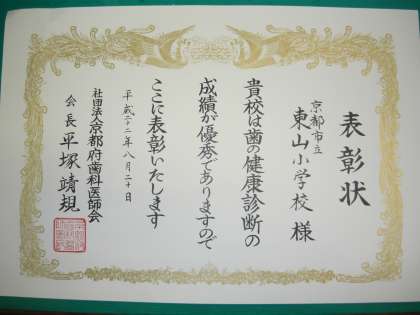 表彰状
京都市立
東山小学校 様
貴校は歯の健康診断の
成績が優秀でありますので
ここに表彰いたします
平成二十二年八月二十日
社団法人京都府歯科医師会
会長 平塚靖規